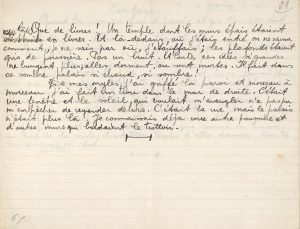 88
Que de livres ! Un temple dont les murs épais étaient
en livres. Et là-dedans, où j'étais entré on ne sait
comment, je ne sais par où, j'étouffais ; les plafonds étaient
gris de poussière. Pas un bruit. Et toutes ces idées si grandes
ne bougent plus, elles dorment, ou sont mortes. Il fait dans
ce palais si chaud, si sombre !
De mes ongles, j'ai griffé la paroi et, morceau à
morceau, j'ai fait un trou dans le mur de droite. C'était
une fenêtre et le soleil qui voulait m'aveugler n'a pas pu
m'empêcher de regarder dehors. C'était la rue, mais le palais
n'était plus là. Je connaissais déjà une autre poussière et
d'autres murs qui bordaient le trottoir.